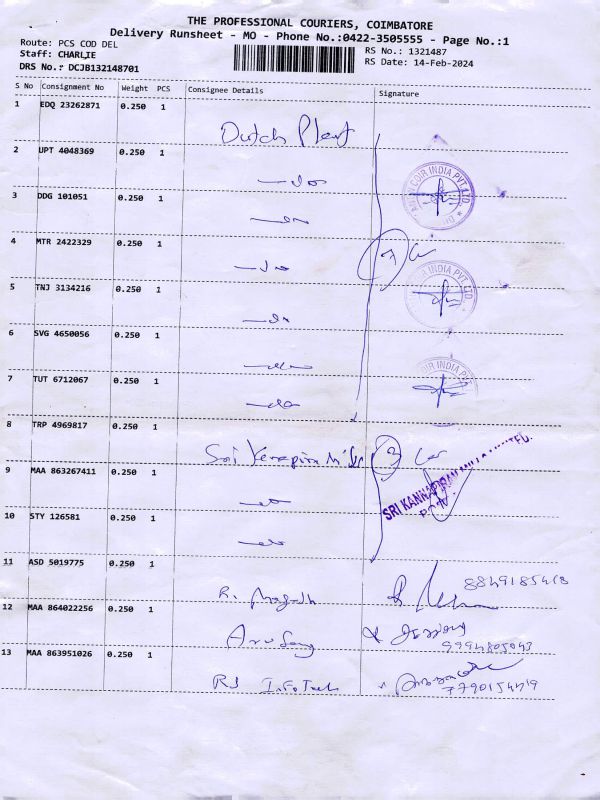 THE PROFESSIONAL COURIERS, COIMBATORE
Delivery Runsheet - MO - Phone No.:0422-3505555 - Page No.:1
Route: PCS COD DEL
Staff: CHARLIE
DRS No.: DCJB132148701
RS No.: 1321487
RS Date: 14-Feb-2024
S No Consignment No Weight PCS Consignee Details Signature
1 EDQ 23262871 0.250 1
Dutch Plant
2 UPT 4048369 0.250 1
3 DDG 101051 0.250 1
COIR INDIA PVT LTD.
4 MTR 2422329 0.250 1
7
5 TNJ 3134216 0.250 1
INDIA PVT LTD.
6 SVG 4650056 0.250 1
7 TUT 6712067 0.250 1
COIR INDIA PVT
8 TRP 4969817 0.250 1
Sri 3
9 MAA 863267411 0.250 1
SRI KANNAPIRAN
10 STY 126581 0.250 1
11 ASD 5019775 0.250 1
R.
12 MAA 864022256 0.250 1
9994805043
13 MAA 863951026 0.250 1
RS InfoTech